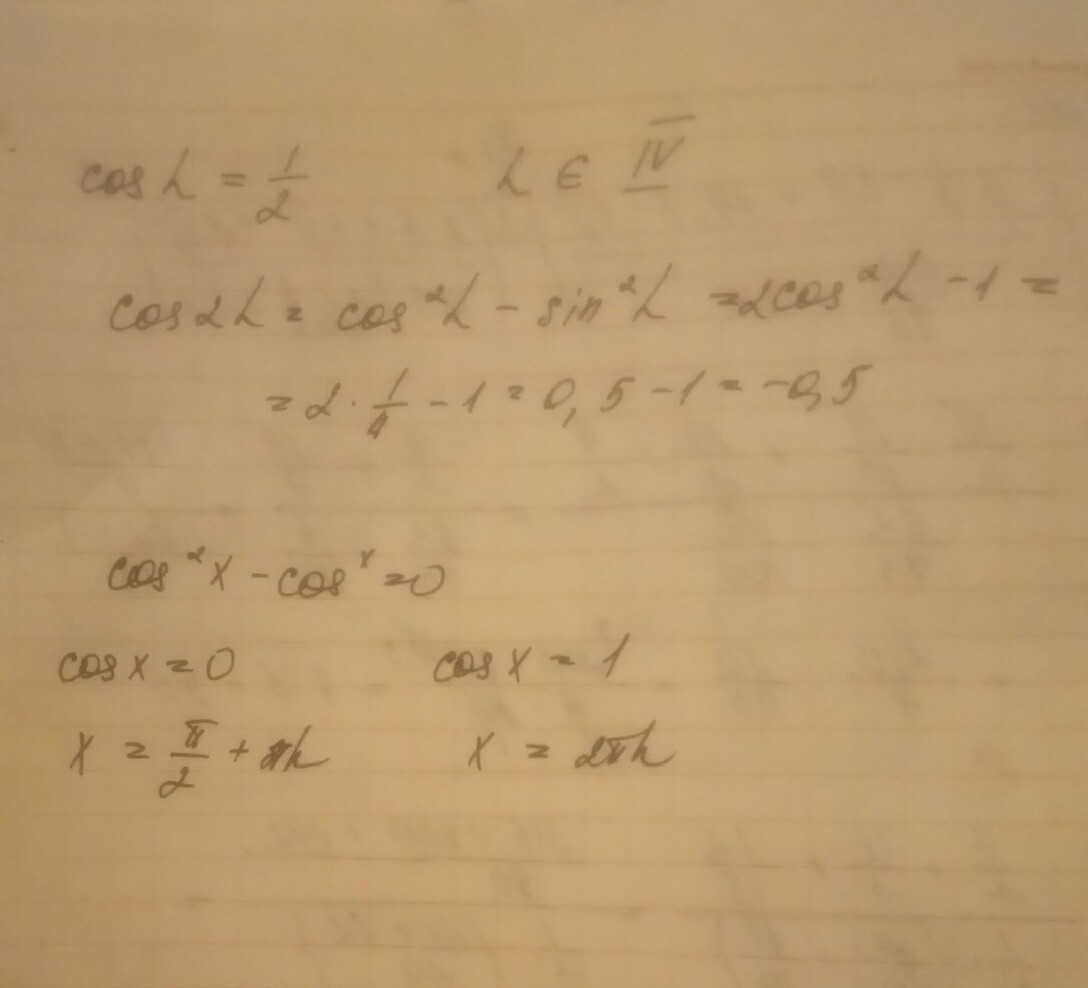 cos α = 1/2 α ∈ IV
cos 2α = cos²α - sin²α = 2cos²α - 1 =
= 2 · 1/4 - 1 = 0,5 - 1 = -0,5
cos²x - cos x = 0
cos x = 0 cos x = 1
x = π/2 + πk x = 2πk